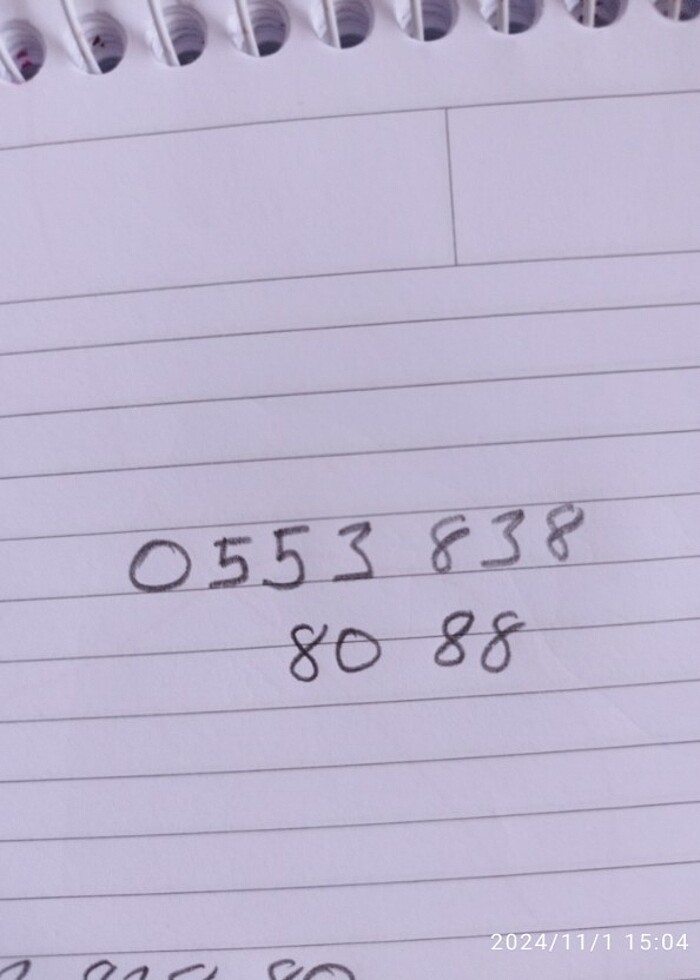 0553 838
80 88
2024/11/1 15:04